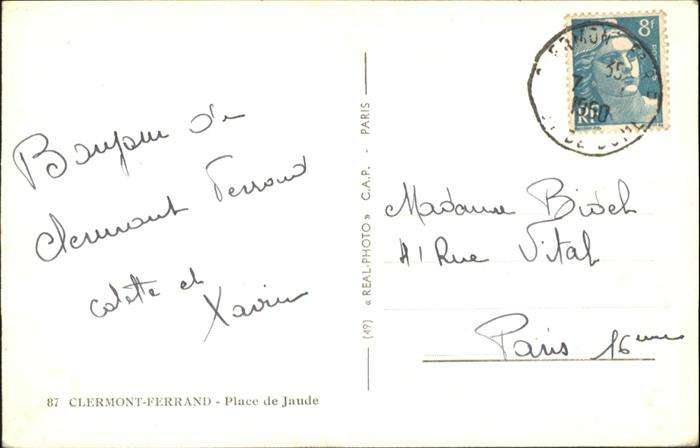 Bonjour de
Clermont Ferrand
Colette et
Xavier
87 CLERMONT-FERRAND - Place de Jaude
(49) « REAL-PHOTO » C.A.P. - PARIS
8F
RF
1950
DE DOME
Madame
41 Rue Vital
Paris 16eme